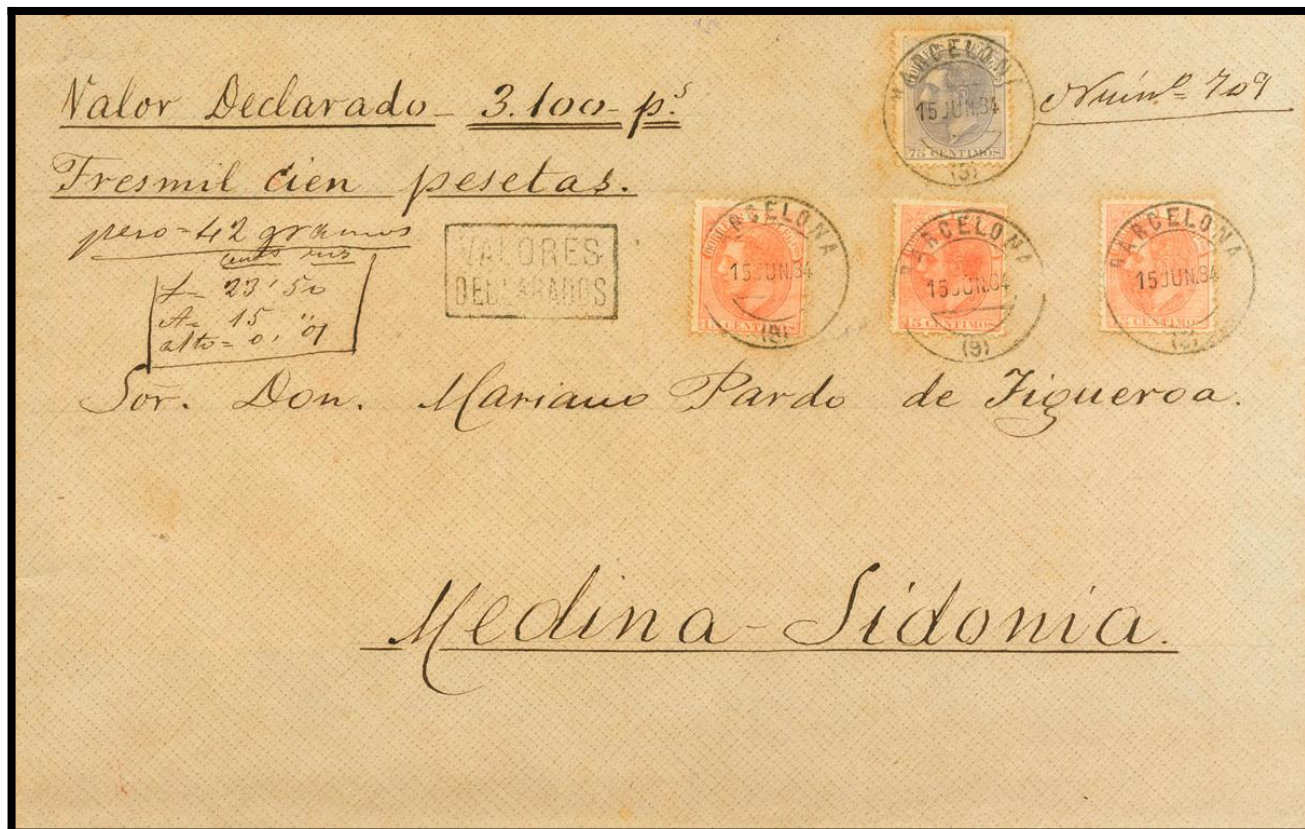 Valor Declarado 3.100 pˢ
Numº 709
Tresmil cien pesetas.
peso = 42 gramos
L = 23'50
A = 15 "
alto = 0,"01
VALORES
DECLARADOS
BARCELONA
15 JUN.84
(5)
75 CENTIMOS
BARCELONA
15 JUN.84
(9)
15 CENTIMOS
BARCELONA
15 JUN.84
(9)
15 CENTIMOS
BARCELONA
15 JUN.84
15 CENTIMOS
Sor. Don. Mariano Pardo de Figueroa.
Medina-Sidonia.